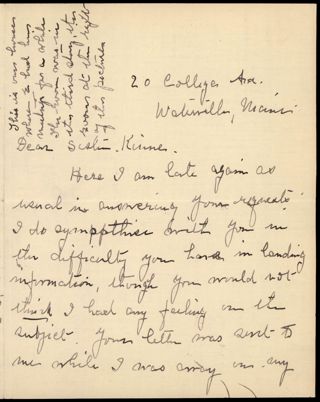 This is our house
where he had his
meetings for a while
The room was in
its third story, the
room at the right
of the picture
20 College Ave.
Waterville, Maine
Dear Sister Kinne.
Here I am late again as
usual in answering your requests.
I do sympathise with you in
the difficulty you have in landing
information, though you would not
think I had any feeling on the
subject. Your letter was sent to
me while I was away on my